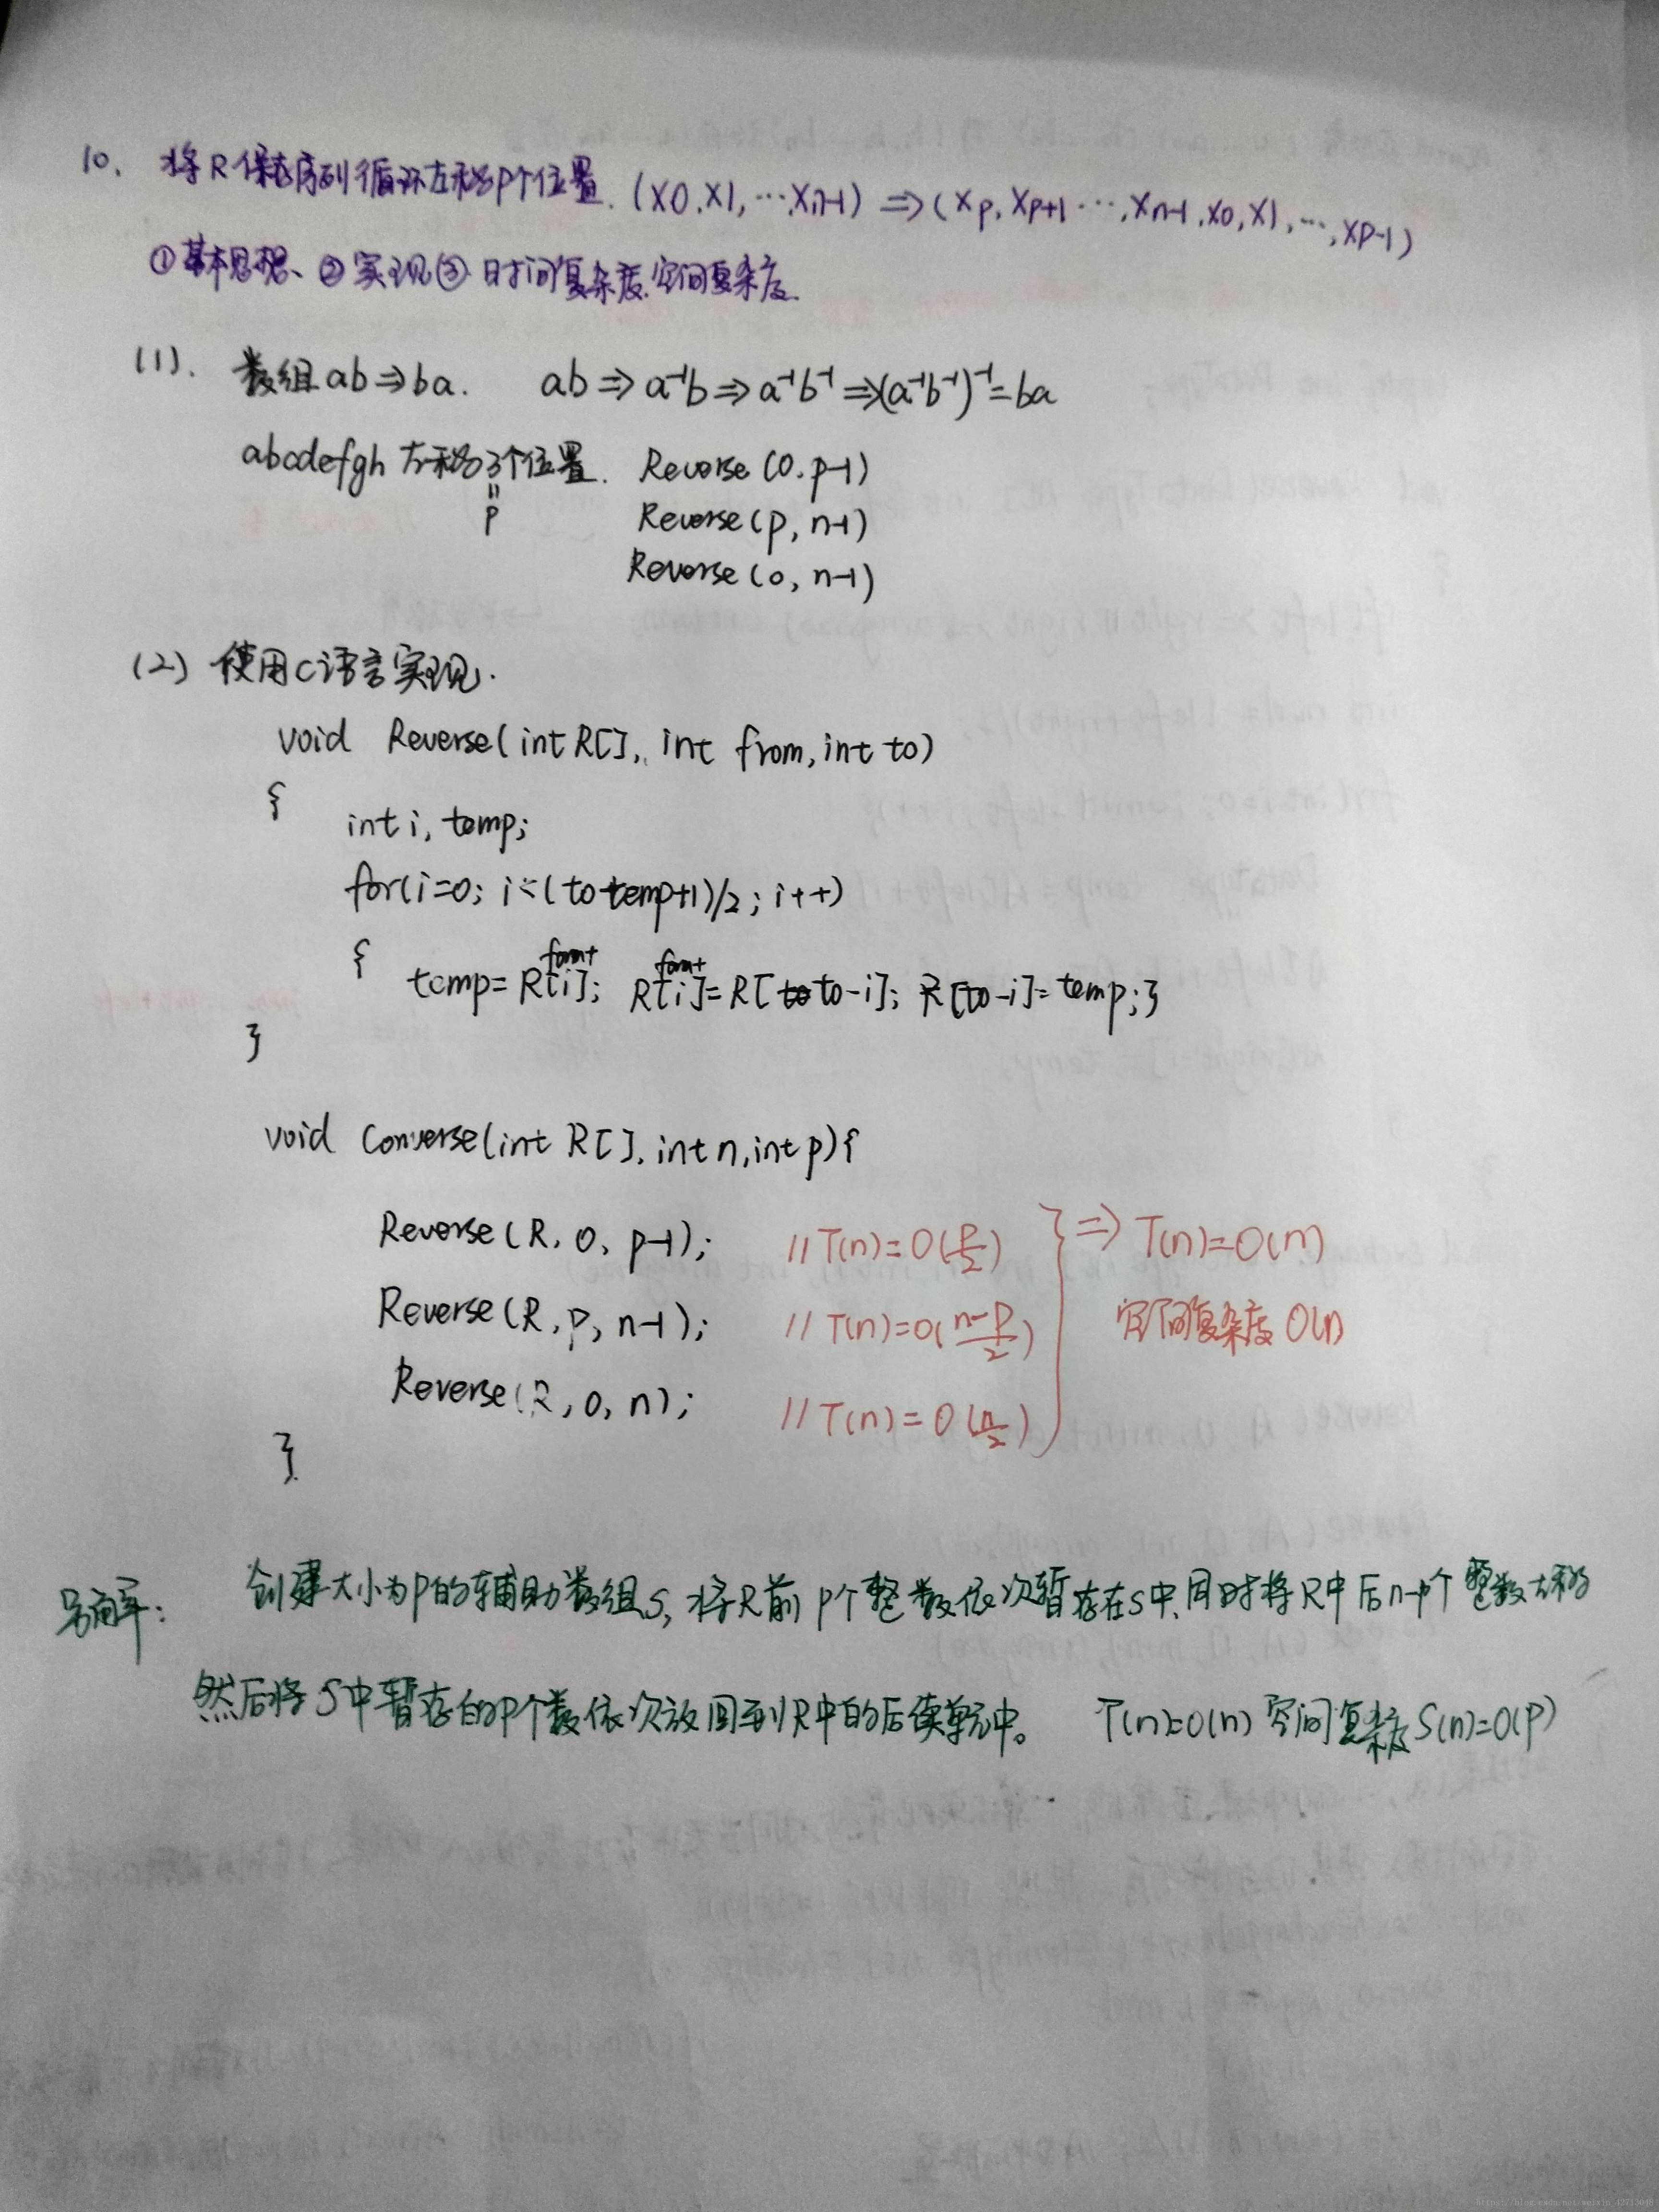 10. 将R保存序列循环左移P个位置. (X0,X1,…Xn-1) ⇒ (Xp,Xp+1…,Xn-1,X0,X1,…,Xp-1)
①基本思想、②实现③时间复杂度.空间复杂度.
(1). 数组ab⇒ba. ab⇒a⁻¹b⇒a⁻¹b⁻¹⇒(a⁻¹b⁻¹)⁻¹=ba
abcdefgh左移3个位置. Reverse(0.p-1)
=
P Reverse(p,n-1)
Reverse(0,n-1)
(2) 使用C语言实现.
void Reverse(int R[], int from, int to)
{
int i, temp;
for(i=0; i<(to-temp+1)/2; i++)
{ temp=R[from+i]; R[from+i]=R[to-i]; R[to-i]=temp;}
}
void Converse(int R[], int n, int p){
Reverse(R, 0, p-1); //T(n)=O(p/2) } ⇒ T(n)=O(n)
Reverse(R, p, n-1); //T(n)=O((n-p)/2) 空间复杂度 O(1)
Reverse(R, 0, n); //T(n)=O(n/2)
}
另解: 创建大小为P的辅助数组S, 将R前P个整数依次暂存在S中,同时将R中后n-p个整数左移
然后将S中暂存的P个数依次放回到R中的后续单元中。 T(n)=O(n) 空间复杂度S(n)=O(P)